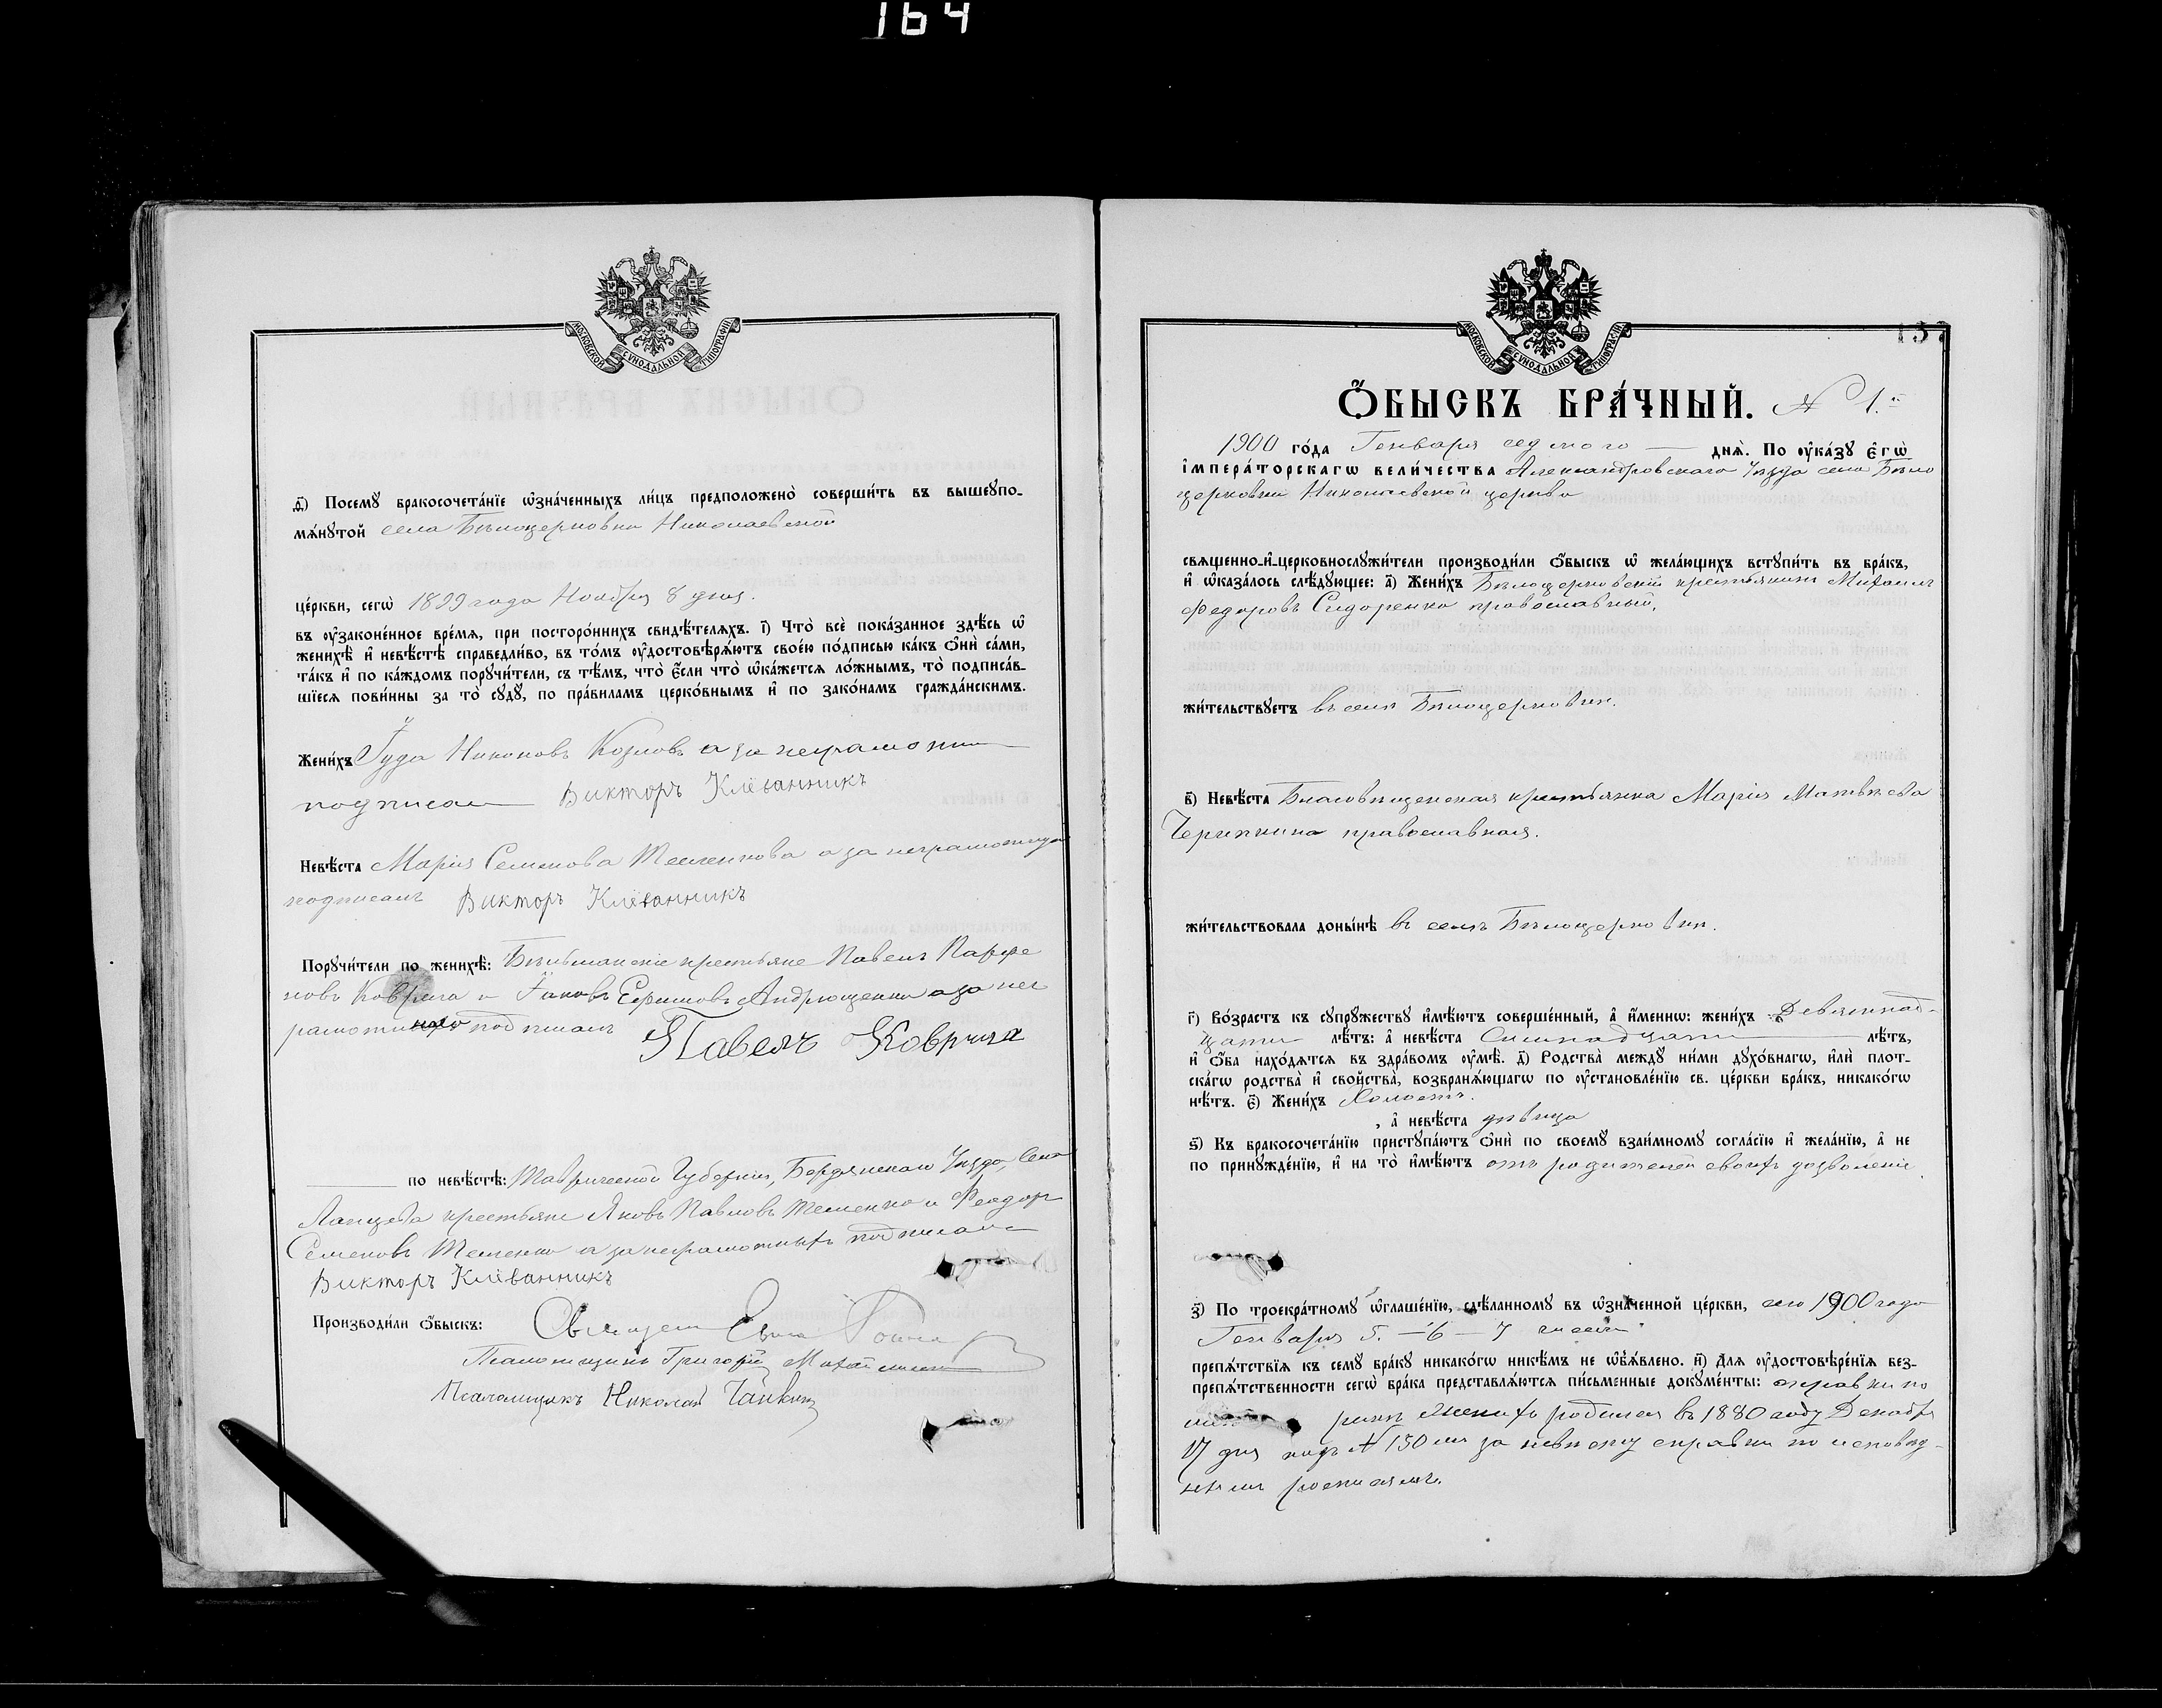 164
МОСКОВСКОЙ СѴНОДАЛЬНОЙ ТИПОГРАФІИ
ѳ҃) Посемꙋ бракосочета́нїе ѡ҆зна́ченныхъ ли́цъ предположено̀ соверши́ть въ вышеꙋпо-
мѧ́нꙋтой села Бѣлоцерковки Николаевской
це́ркви, сегѡ̀ 1899 года Ноября 8 дня.
въ ᲂу҆зако́ненное вре́мѧ, при посторо́ннихъ свидѣ́телѧхъ. і҃) Что̀ всѐ пока́занное здѣ́сь ѡ҆
женихѣ̀ и҆ невѣ́стѣ справедли́во, въ то́мъ ᲂу҆достовѣрѧ́ютъ свое́ю по́дписью ка́къ ѻ҆нѝ са́ми,
та́къ и҆ по ка́ждомъ порꙋчи́тели, съ тѣ́мъ, что̀ є҆́сли что̀ ѡ҆ка́жетсѧ ло́жнымъ, то̀ подписа́в-
шїесѧ пови́нны за то̀ сꙋдꙋ̀, по пра́виламъ церко́внымъ и҆ по зако́намъ гражда́нскимъ.
Жени́хъ Іуда Никоновъ Козловъ а за неграмотн
подписал Викторъ Клёванникъ
Невѣ́ста Марія Семенова Тесленкова а за неграмотную
подписалъ Викторъ Клёванникъ
Порꙋчи́тели по женихѣ̀: Бѣльманскіе крестьяне Павелъ Парфе
новъ Коврига и Іаковъ Ефимовъ Андрющенко а за нег
рамотн подписалъ Павелъ Коврига
по невѣ́стѣ: Таврической Губерніи, Бердянскаго Уѣзда, Села
крестьяне Яковъ Павловъ Тесленко и Феодоръ
Семеновъ Тесленко а за неграмотныхъ подписалъ
Викторъ Клёванникъ
Производи́ли ѻ҆́быскъ: Священ
Псаломщикъ Григорій
Псаломщикъ Николай
МОСКОВСКОЙ СѴНОДАЛЬНОЙ ТИПОГРАФІИ
137
Ѻ҆́БЫСКЪ БРА́ЧНЫЙ. № 1.й
1900 го́да Генваря седмого днѧ̀. По ᲂу҆ка́зꙋ є҆гѡ̀
і҆мпера́торскагѡ вели́чества Александровскаго Уѣзда села Бѣло
церковки Николаевской церкви
свѧщенно-и҆-церковнослꙋжи́тели производи́ли ѻ҆́быскъ ѡ҆ жела́ющихъ встꙋпи́ть въ бра́къ,
и҆ ѡ҆каза́лось слѣ́дꙋющее: а҃) Жени́хъ Бѣлоцерковскій крестьянинъ Михаилъ
Федоровъ Сидоренко православный,
жи́тельствꙋетъ въ селѣ Бѣлоцерковкѣ.
в҃) Невѣ́ста Благовѣщенская крестьянка Марія Матвѣева
православная.
жи́тельствовала доны́нѣ въ селѣ Бѣлоцерковкѣ.
г҃) Во́зрастъ къ сꙋпрꙋ́жествꙋ и҆мѣ́ютъ соверше́нный, а҆ и҆́меннѡ: жени́хъ Девятнад-
цати лѣ́тъ: а҆ невѣ́ста Семнадцати лѣ́тъ,
и҆ ѻ҆́ба нахо́дѧтсѧ въ здра́вомъ ᲂу҆мѣ̀. д҃) Родства̀ междꙋ̀ ни́ми дꙋхо́внагѡ, и҆лѝ плот-
ска́гѡ родства̀ и҆ сво́йства, возбранѧ́ющагѡ по ᲂу҆становле́нїю св. це́ркви бра́къ, никако́гѡ
нѣ́тъ. є҃) Жени́хъ Холостъ.
, а҆ невѣ́ста дѣвица
ѕ҃) Къ бракосочета́нїю пристꙋпа́ютъ ѻ҆нѝ по своемꙋ̀ взаи́мномꙋ согла́сїю и҆ жела́нїю, а҆ не
по принꙋжде́нїю, и҆ на то̀ и҆мѣ́ютъ отъ родителей своихъ дозволеніе
з҃) По троекра́тномꙋ ѡ҆глаше́нїю, сдѣ́ланномꙋ въ ѡ҆зна́ченной це́ркви, сего 1900 года
Генваря 5. – 6 – 7 чиселъ
препѧ́тствїѧ къ семꙋ̀ бра́кꙋ никако́гѡ никѣ́мъ не ѡ҆б̾ѧ́влено. и҃) Длѧ ᲂу҆достовѣ́ренїѧ без-
препѧ́тственности сегѡ̀ бра́ка представлѧ́ютсѧ пи́сьменные докꙋме́нты: справки по
женихъ родился въ 1880 году Декабря
17 дня подъ № 150 мъ за невѣсту справки по исповѣд-
нымъ росписямъ.